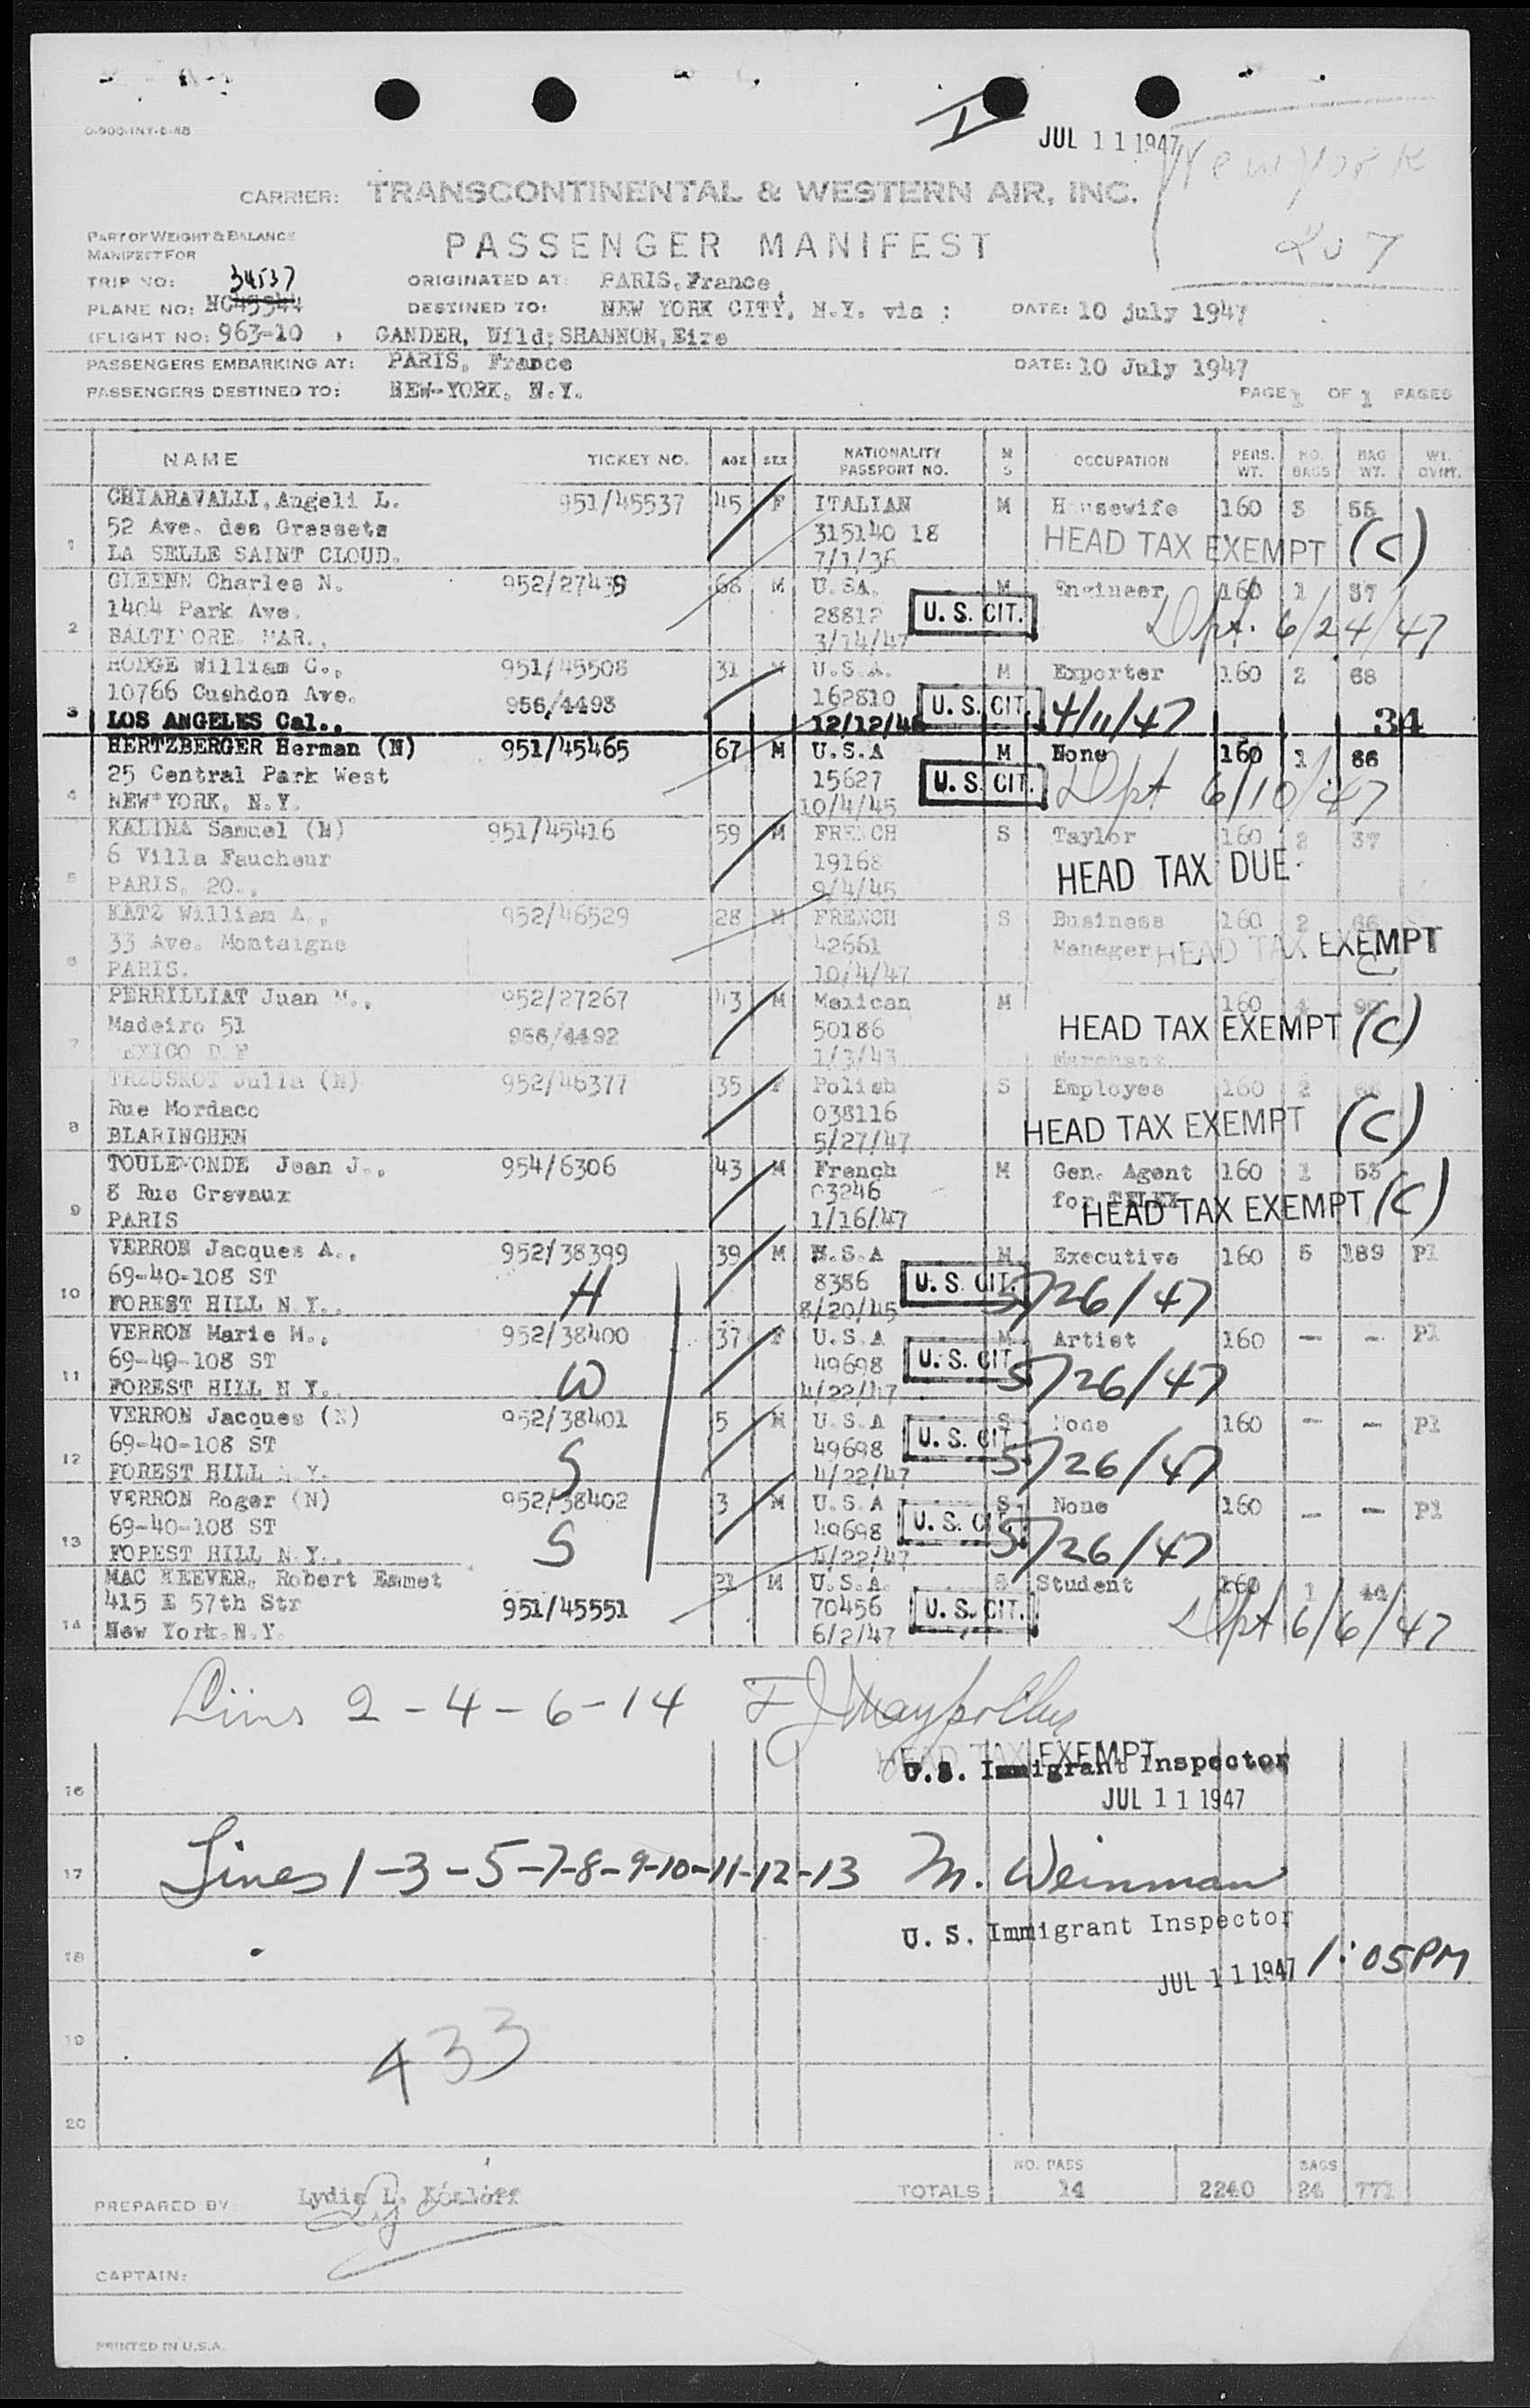 JUL 11 1947
New York
207
CARRIER: TRANSCONTINENTAL & WESTERN AIR, INC.
PART OF WEIGHT & BALANCE
MANIFEST FOR
PASSENGER MANIFEST
TRIP NO: 34537
ORIGINATED AT: PARIS, France,
PLANE NO: NC45344
DESTINED TO: NEW YORK CITY, N.Y. via :
DATE: 10 july 1947
(FLIGHT NO: 963-10 , GANDER, Nfld; SHANNON, Eire
PASSENGERS EMBARKING AT: PARIS, France
DATE: 10 July 1947
PASSENGERS DESTINED TO: NEW-YORK, N.Y.
PAGE 1 OF 1 PAGES
NAME TICKET NO. AGE SEX NATIONALITY PASSPORT NO. M S OCCUPATION PERS. WT. NO. BAGS BAG WT. WT. OVWT.
CHIARAVALLI, Angeli L. 951/45537 45 F ITALIAN M Housewife 160 3 55
52 Ave. des Gressets 315140 18 HEAD TAX EXEMPT (C)
1 LA SELLE SAINT CLOUD. 7/1/36
GLEENN Charles N. 952/27439 68 M U.SA. M Engineer 160 1 37
1404 Park Ave. 28812 U. S. CIT. Dpt. 6/24/47
2 BALTIMORE MAR., 3/14/47
HODGE William C., 951/45508 31 M U.S.A. M Exporter 160 2 68
10766 Cushdon Ave. 956/4493 162810 U. S. CIT. 4/11/47
3 LOS ANGELES Cal., 12/12/46 34
HERTZBERGER Herman (N) 951/45465 67 M U.S.A M None 160 1 66
25 Central Park West 15627 U. S. CIT. Dpt 6/10/47
4 NEW YORK, N.Y. 10/4/45
KALINA Samuel (N) 951/45416 59 M FRENCH S Taylor 160 2 37
6 Villa Faucheur 19168 HEAD TAX DUE
5 PARIS, 20., 9/4/45
KATZ William A., 952/46529 28 M FRENCH S Business 160 2 66
33 Ave. Montaigne 42661 Manager HEAD TAX EXEMPT
6 PARIS. 10/4/47 C
PERRILLIAT Juan M., 952/27267 43 M Mexican M 160
Madeiro 51 956/4492 50186 HEAD TAX EXEMPT (C)
7 MEXICO D F 1/3/43 Merchant
TRZUSKOT Julia (N) 952/46377 35 F Polish S Employee 160 2
Rue Mordacc 038116 HEAD TAX EXEMPT (C)
8 BLARINGHEN 5/27/47
TOULEMONDE Jean J., 954/6306 43 M French M Gen. Agent 160 1 53
8 Rue Crevaux 03246 for TELEX HEAD TAX EXEMPT (C)
9 PARIS 1/16/47
VERRON Jacques A., 952/38399 39 M U.S.A M Executive 160 5 189 Pl
69-40-108 ST H 8386 U. S. CIT. 5/26/47
10 FOREST HILL N.Y.. 8/20/45
VERRON Marie M., 952/38400 37 F U.S.A M Artist 160 — — Pl
69-40-108 ST W 49698 U. S. CIT. 5/26/47
11 FOREST HILL N Y.. 4/22/47
VERRON Jacques (N) 952/38401 5 M U.S.A S None 160 — — Pl
69-40-108 ST S 49698 U. S. CIT. 5/26/47
12 FOREST HILL N.Y. 4/22/47
VERRON Roger (N) 952/38402 3 M U.S.A S None 160 — — Pl
69-40-108 ST S 49698 U. S. CIT. 5/26/47
13 FOREST HILL N.Y.. 4/22/47
MAC KEEVER, Robert Emmet 21 M U.S.A. S Student 160 1 44
415 E 57th Str 951/45551 70456 U. S. CIT. Dpt 6/6/47
14 New York.N.Y. 6/2/47
Lines 2-4-6-14
HEAD TAX EXEMPT
U.S. Immigrant Inspector
16 JUL 11 1947
17 Lines 1-3-5-7-8-9-10-11-12-13 M. Weinman
U. S. Immigrant Inspector
18 JUL 11 1947 1:05PM
19
433
20
NO. PASS BAGS
TOTALS 14 2240 24 771
PREPARED BY: Lydia L. Kozloff
CAPTAIN:
PRINTED IN U.S.A.